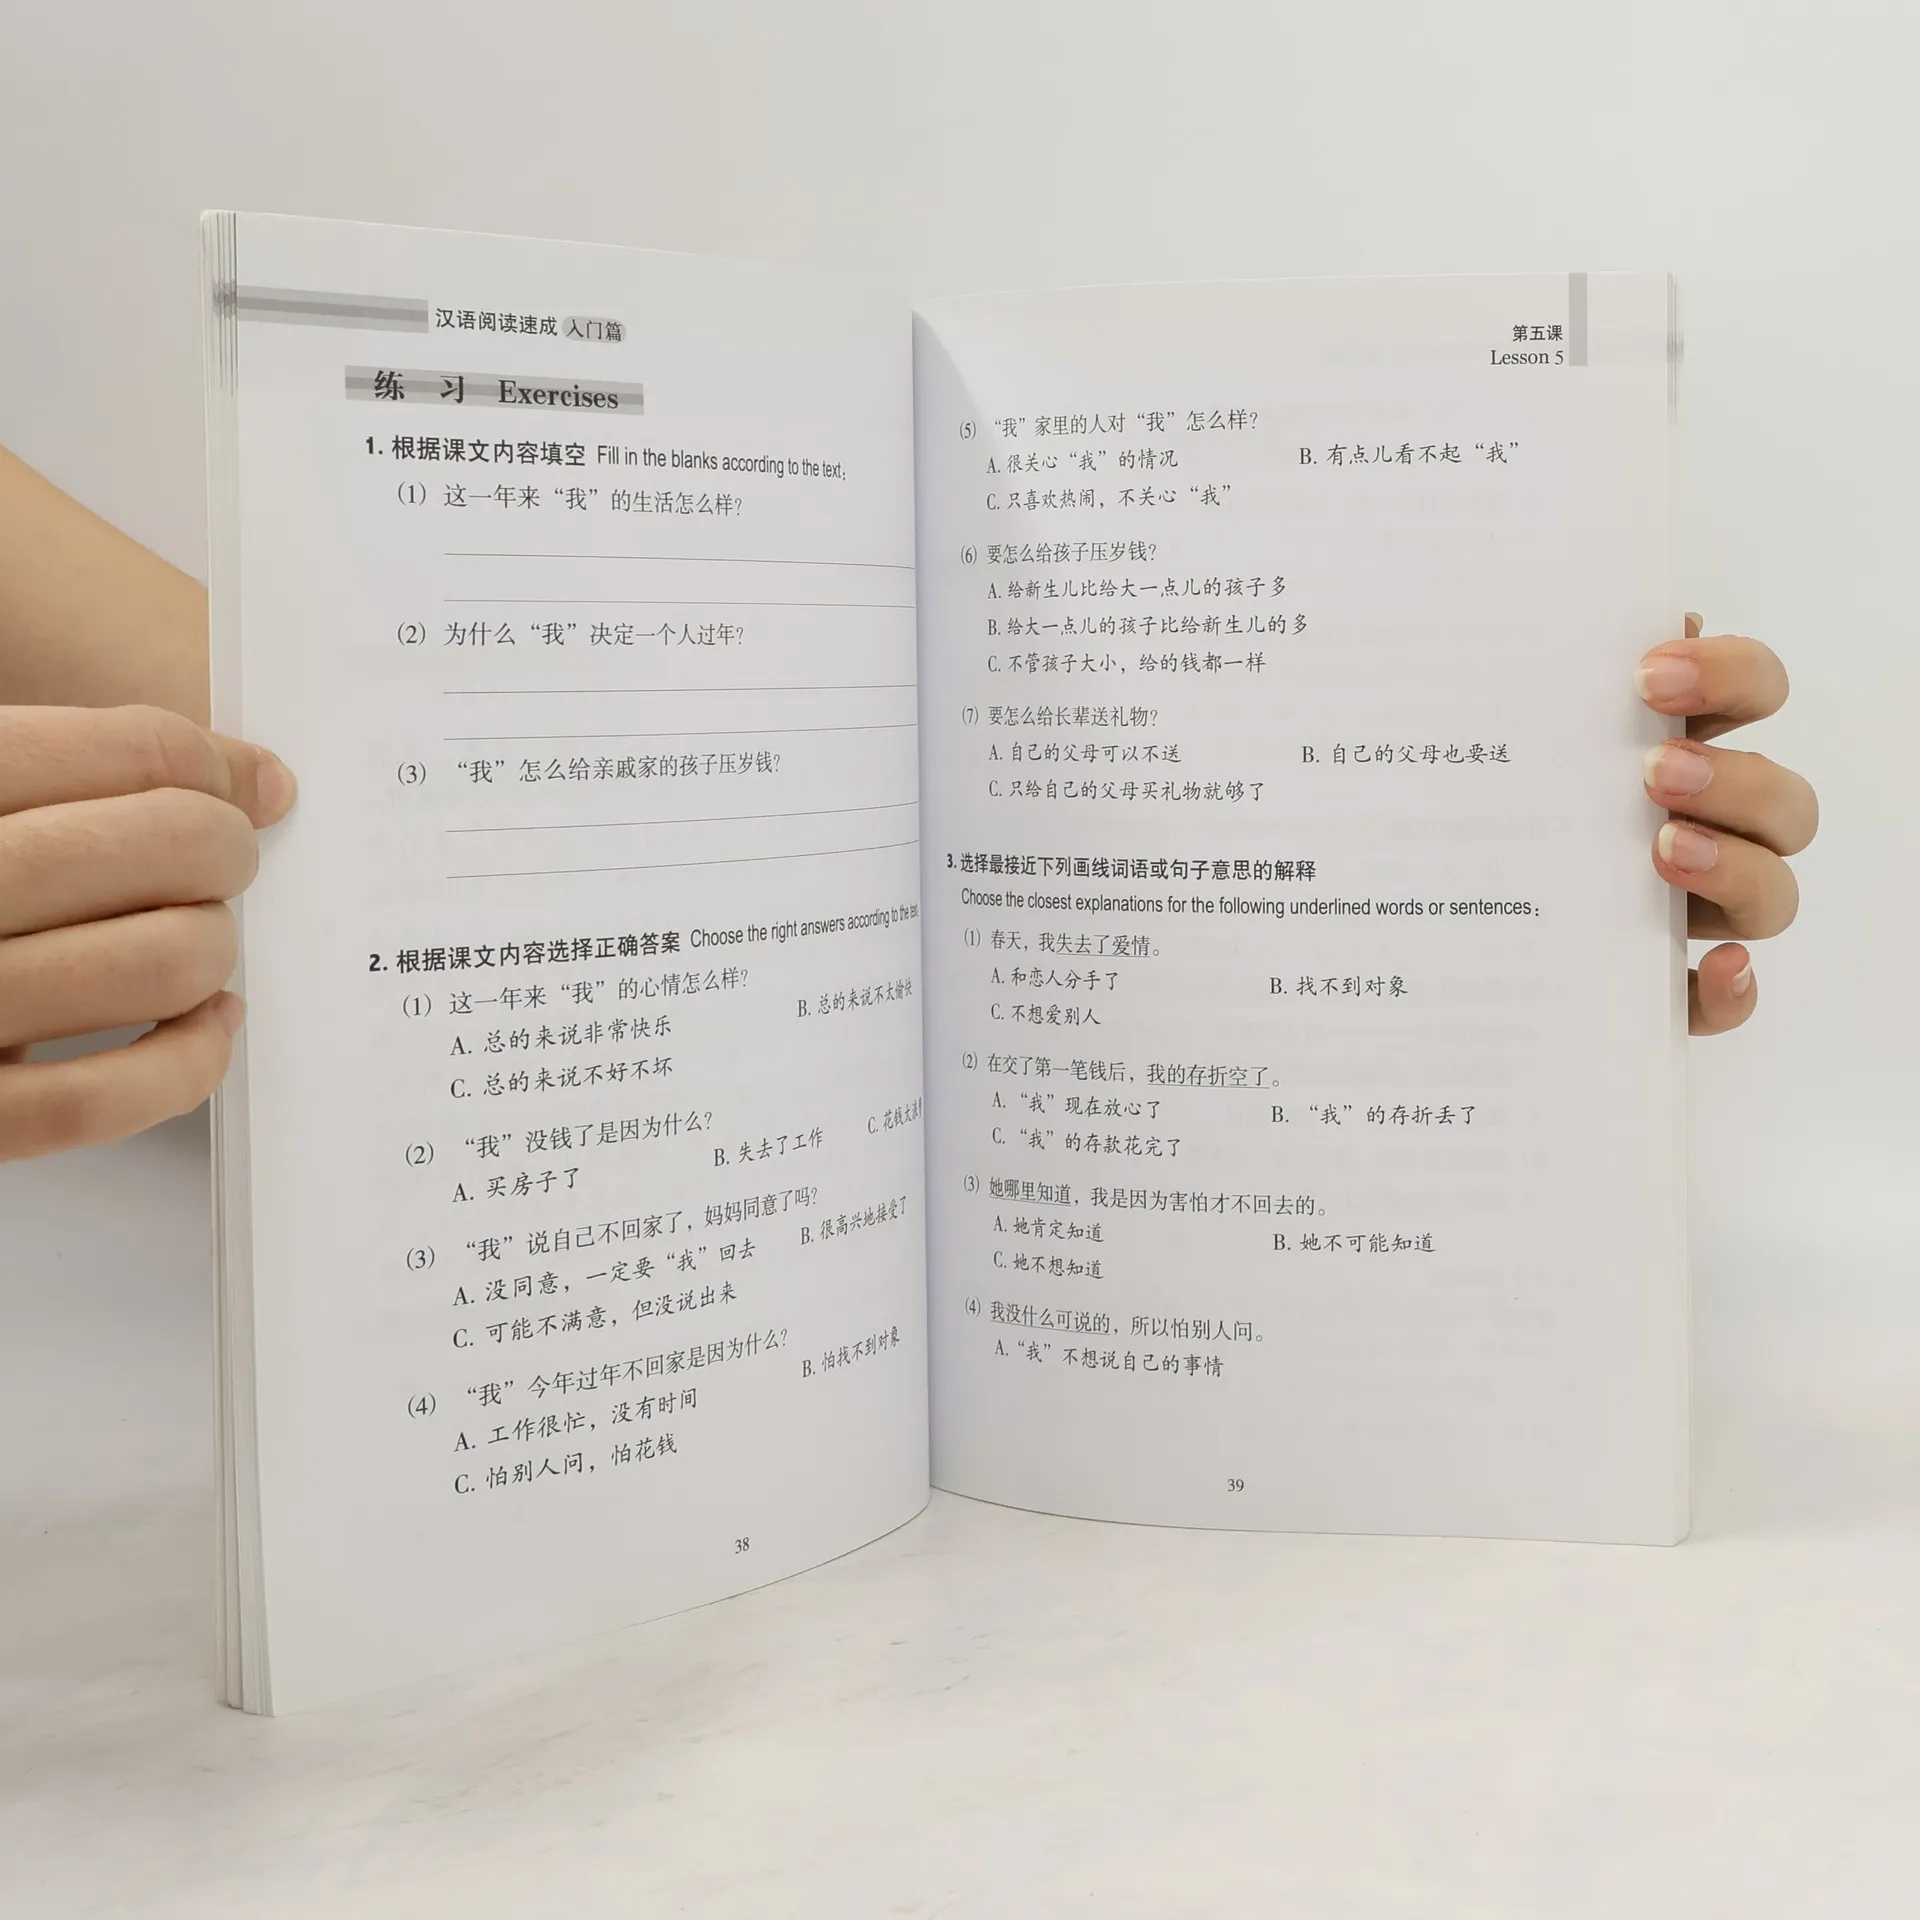 汉语阅读速成 入门篇
练 习 Exercises
1. 根据课文内容填空 Fill in the blanks according to the text:
(1) 这一年来“我”的生活怎么样?
(2) 为什么“我”决定一个人过年?
(3) “我”怎么给亲戚家的孩子压岁钱?
2. 根据课文内容选择正确答案 Choose the right answers according to the text
(1) 这一年来“我”的心情怎么样?
A. 总的来说非常快乐 B. 总的来说不太愉快
C. 总的来说不好不坏
(2) “我”没钱了是因为什么?
A. 买房子了 B. 失去了工作 C. 花钱太
(3) “我”说自己不回家了，妈妈同意了吗?
A. 没同意，一定要“我”回去 B. 很高兴地接受了
C. 可能不满意，但没说出来
(4) “我”今年过年不回家是因为什么?
A. 工作很忙，没有时间 B. 怕找不到对象
C. 怕别人问，怕花钱
38
第五课
Lesson 5
(5) “我”家里的人对“我”怎么样?
A. 很关心“我”的情况 B. 有点儿看不起“我”
C. 只喜欢热闹，不关心“我”
(6) 要怎么给孩子压岁钱?
A. 给新生儿比给大一点儿的孩子多
B. 给大一点儿的孩子比给新生儿的多
C. 不管孩子大小，给的钱都一样
(7) 要怎么给长辈送礼物?
A. 自己的父母可以不送 B. 自己的父母也要送
C. 只给自己的父母买礼物就够了
3. 选择最接近下列画线词语或句子意思的解释
Choose the closest explanations for the following underlined words or sentences:
(1) 春天，我失去了爱情。
A. 和恋人分手了 B. 找不到对象
C. 不想爱别人
(2) 在交了第一笔钱后，我的存折空了。
A. “我”现在放心了 B. “我”的存折丢了
C. “我”的存款花完了
(3) 她哪里知道，我是因为害怕才不回去的。
A. 她肯定知道 B. 她不可能知道
C. 她不想知道
(4) 我没什么可说的，所以怕别人问。
A. “我”不想说自己的事情
39